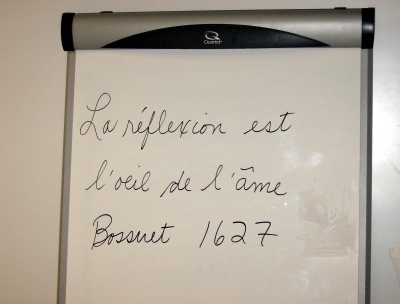 Quartet
La réflexion est
l'oeil de l'âme
Bossuet 1627